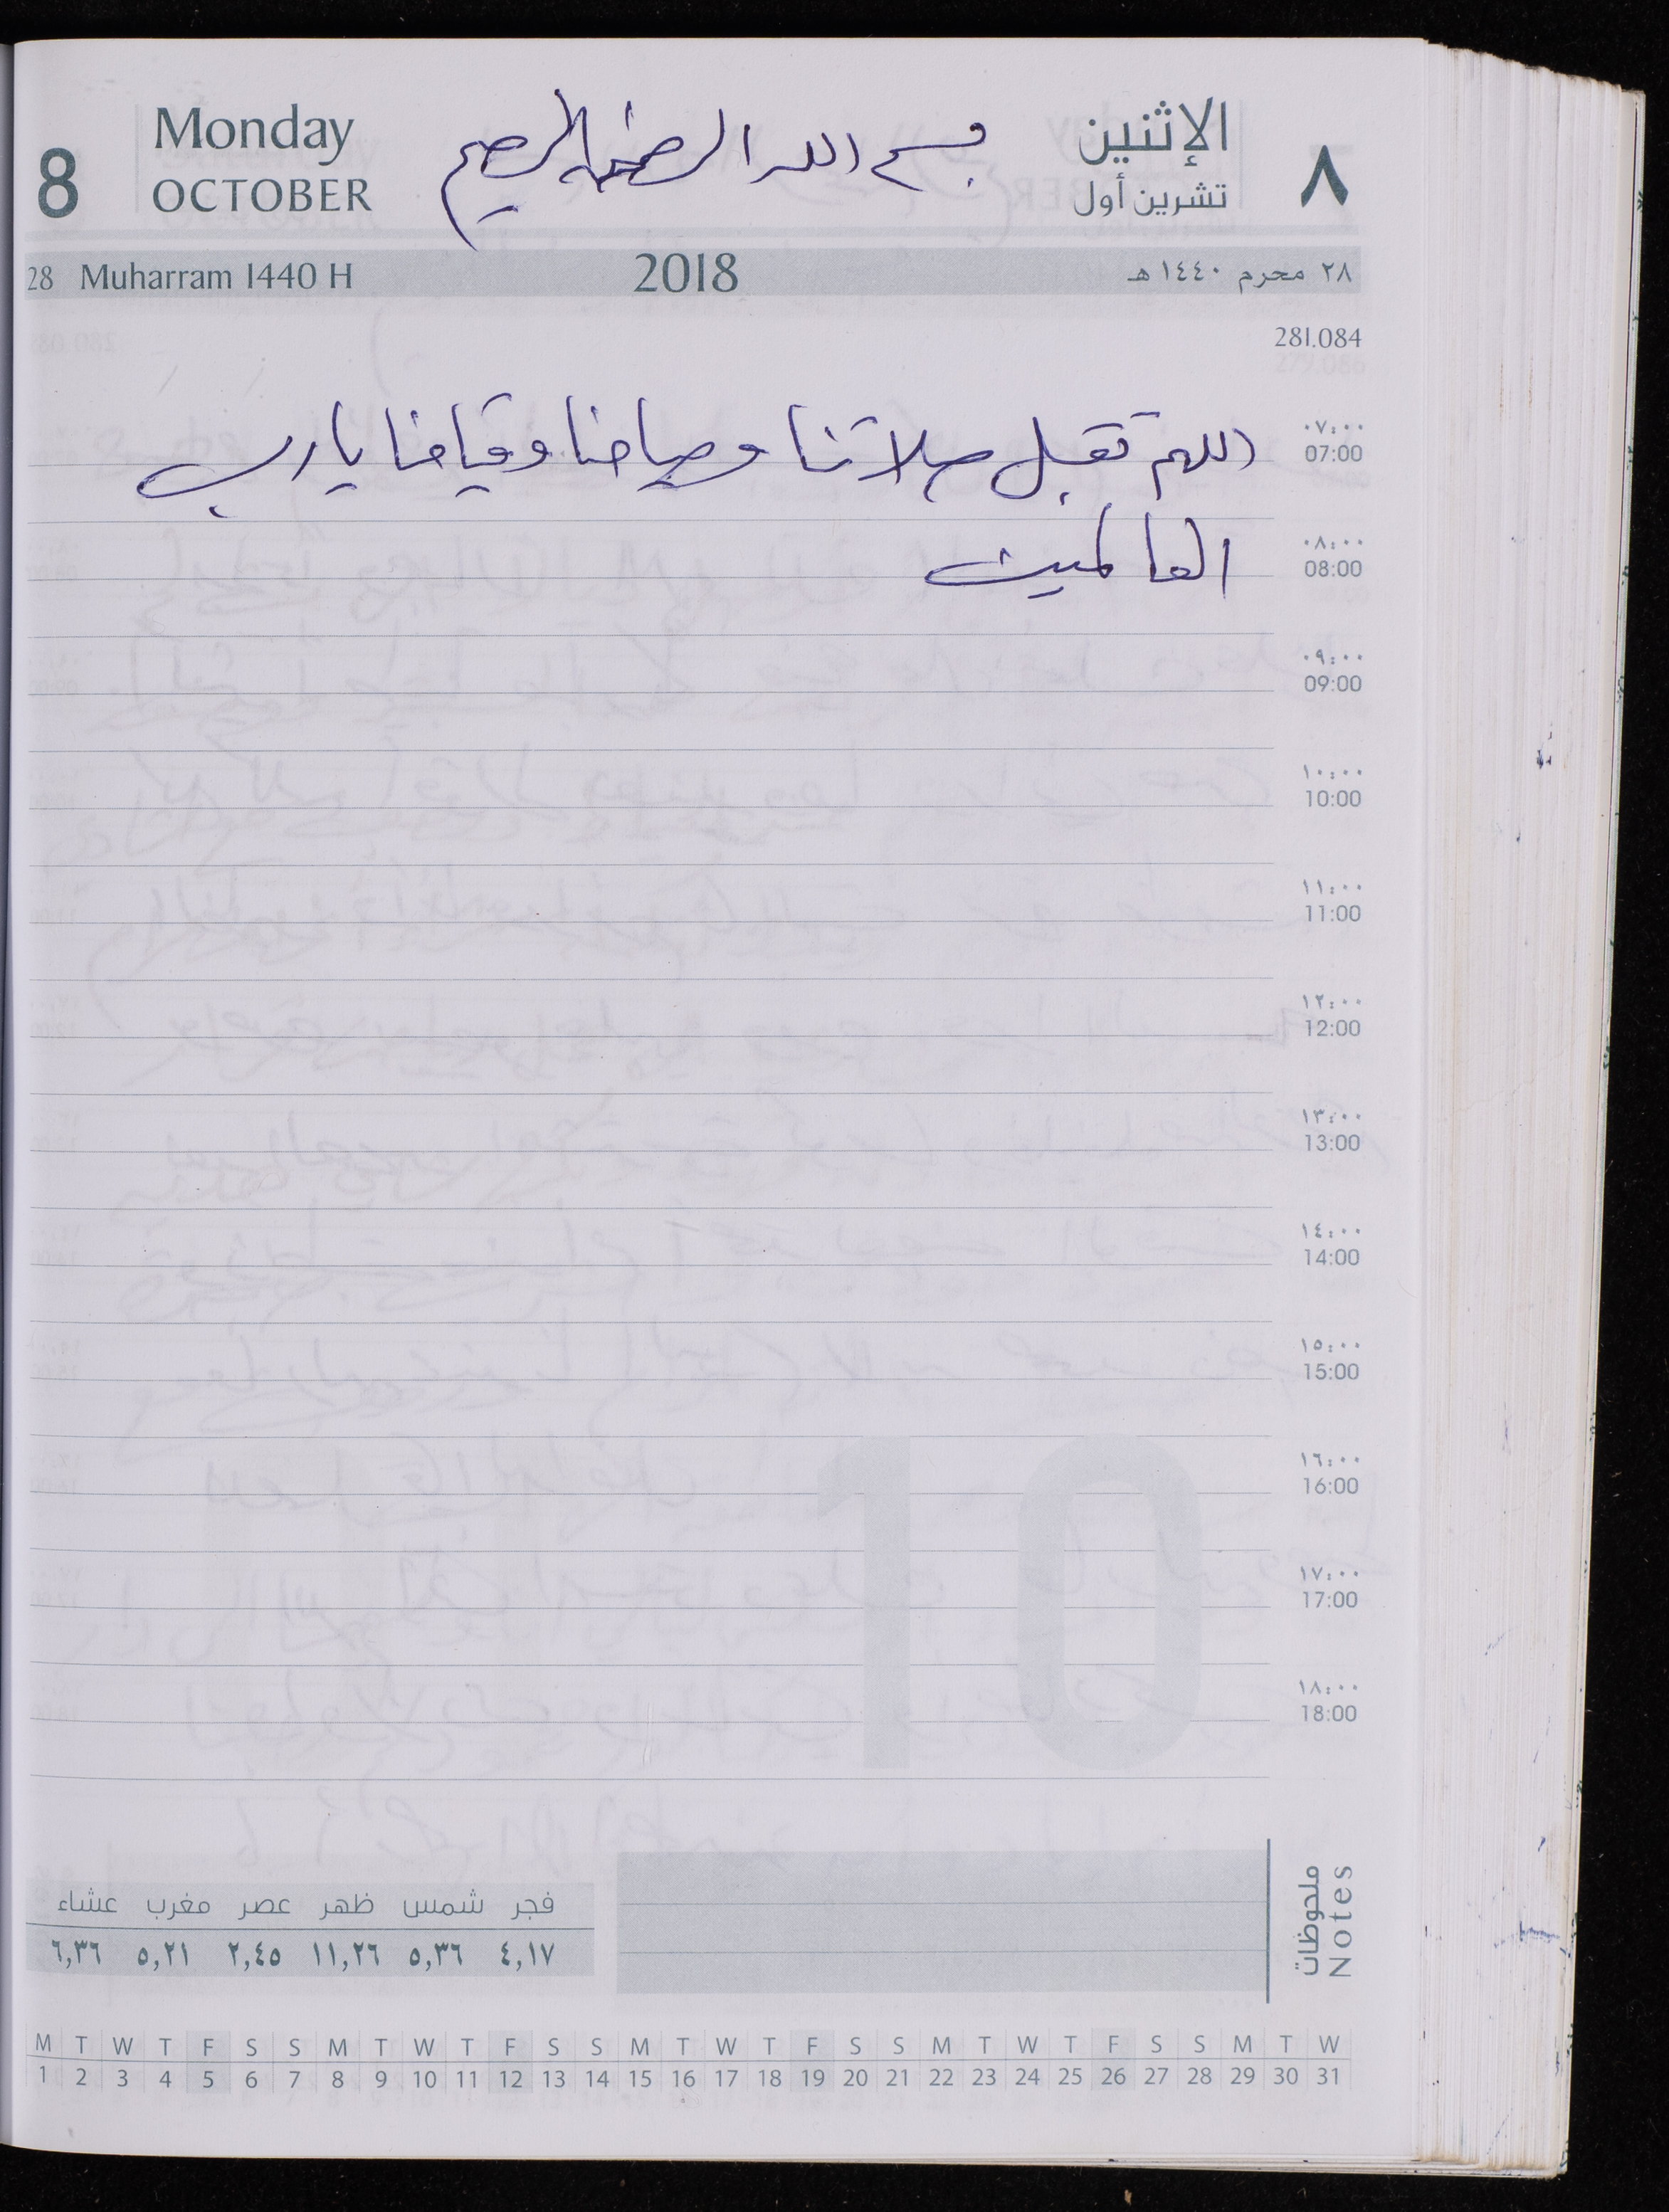 8 Monday بسم الله الرحمن الرحيم الإثنين ٨
OCTOBER تشرين أول
28 Muharram 1440 H 2018 ٢٨ محرم ١٤٤٠ هـ
281.084
اللهم تقبل صلاتنا وصيامنا وقيامنا يا رب ٠٧:٠٠
07:00
العالمين ٠٨:٠٠
08:00
٠٩:٠٠
09:00
١٠:٠٠
10:00
١١:٠٠
11:00
١٢:٠٠
12:00
١٣:٠٠
13:00
١٤:٠٠
14:00
١٥:٠٠
15:00
١٦:٠٠
16:00
١٧:٠٠
17:00
١٨:٠٠
18:00
10
ملحوظات
Notes
فجر شمس ظهر عصر مغرب عشاء
٤,١٧ ٥,٣٦ ١١,٢٦ ٢,٤٥ ٥,٢١ ٦,٣٦
M T W T F S S M T W T F S S M T W T F S S M T W T F S S M T W
1 2 3 4 5 6 7 8 9 10 11 12 13 14 15 16 17 18 19 20 21 22 23 24 25 26 27 28 29 30 31